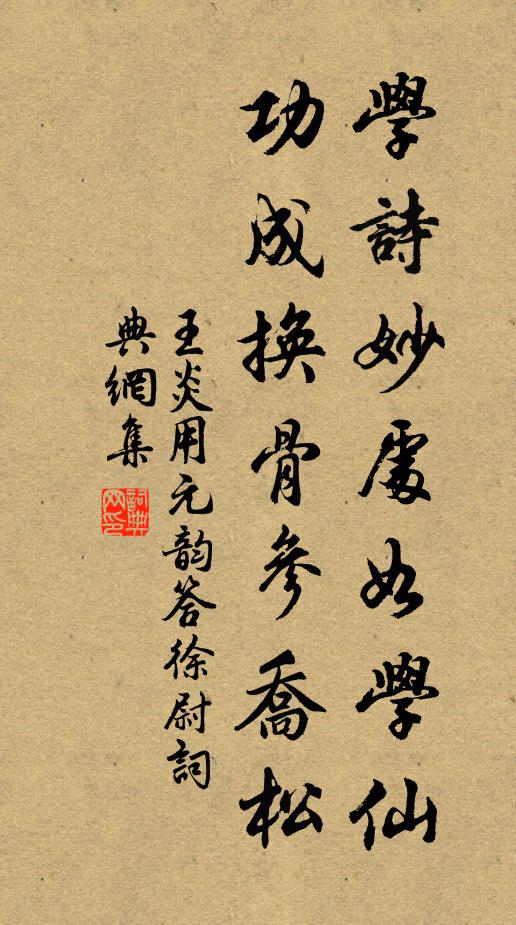 學詩妙處如學仙
功成換骨參喬松
王炎用元韵答徐尉詞
典網集
詞典网印